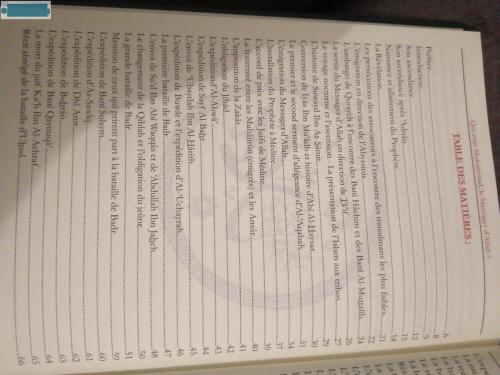 Qui était Muhammad, le Messager d'Allah ?
TABLE DES MATIÈRES :
Préface 6
Introduction 8
Son ascendance 9
Son ascendance après 'Adnân 12
Naissance et allaitement du Prophète 15
La Révélation 18
Les persécutions des associateurs à l'encontre des musulmans les plus faibles. 21
L'émigration en direction de l'Abyssinie 22
L'embargo de Quraych à l'encontre des Banî Hâchim et des Banî Al-Muttalib. 24
La sortie du Messager d'Allah en direction de Tâ'if 26
Le voyage nocturne et l'ascension - La présentation de l'Islam aux tribus 27
L'histoire de Suwayd Ibn As-Sâmit 29
Conversion de Iyâs Ibn Mu'âdh et histoire d'Abî Al-Haysar 30
Le premier et le second serment d'allégeance d'Al-'Aqabah 31
L'émigration du Messager d'Allah 34
L'installation du Prophète à Médine 37
L'accord de paix avec les Juifs de Médine 39
La fraternité entre les Muhâjirûn (émigrés) et les Ansâr 40
L'imposition de la Zakâh 41
L'obligation du Jihâd 42
L'expédition d'Al-Abwâ' 43
L'expédition de Sayf Al-Bahr 44
L'envoi de 'Ubaydah Ibn Al-Hârith 45
L'expédition de Buwât et l'expédition d'Al-'Uchayrah 46
La première bataille de Badr 47
L'envoi de Sa'd Ibn Abî Waqqâs et de 'Abdullah Ibn Jahch 48
Le changement de Qiblah et l'obligation du jeûne 50
La grande bataille de Badr 51
Mention de ceux qui prirent part à la bataille de Badr 59
L'expédition de Banî Sulaym 60
L'expédition d'As-Sawîq 61
L'expédition de Dhî Amr 62
L'expédition de Buhrân 63
L'expédition de Banî Qaynuqâ' 64
La mort du juif : Ka'b Ibn Al-Achraf 65
Récit abrégé de la bataille d'Uhud 66